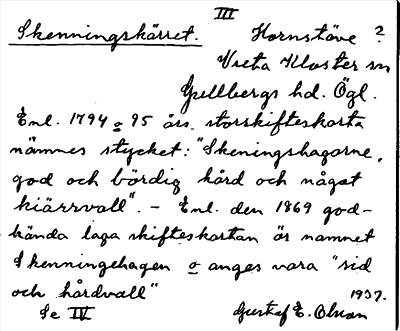 III
Skenningskärret. Hornstäve ?
Vreta Kloster sn
Gullbergs hd. Ögl.
Enl. 1794 o 95 års storskifteskarta
nämnes stycket: "Skeningshagarne,
god och bördig hård och något
kiärrvall". - Enl. den 1869 god-
kända laga skifteskartan är namnet
Skenningehagen o anges vara "sid
och hårdvall" 1937.
Se IV Gustaf E. Olsson